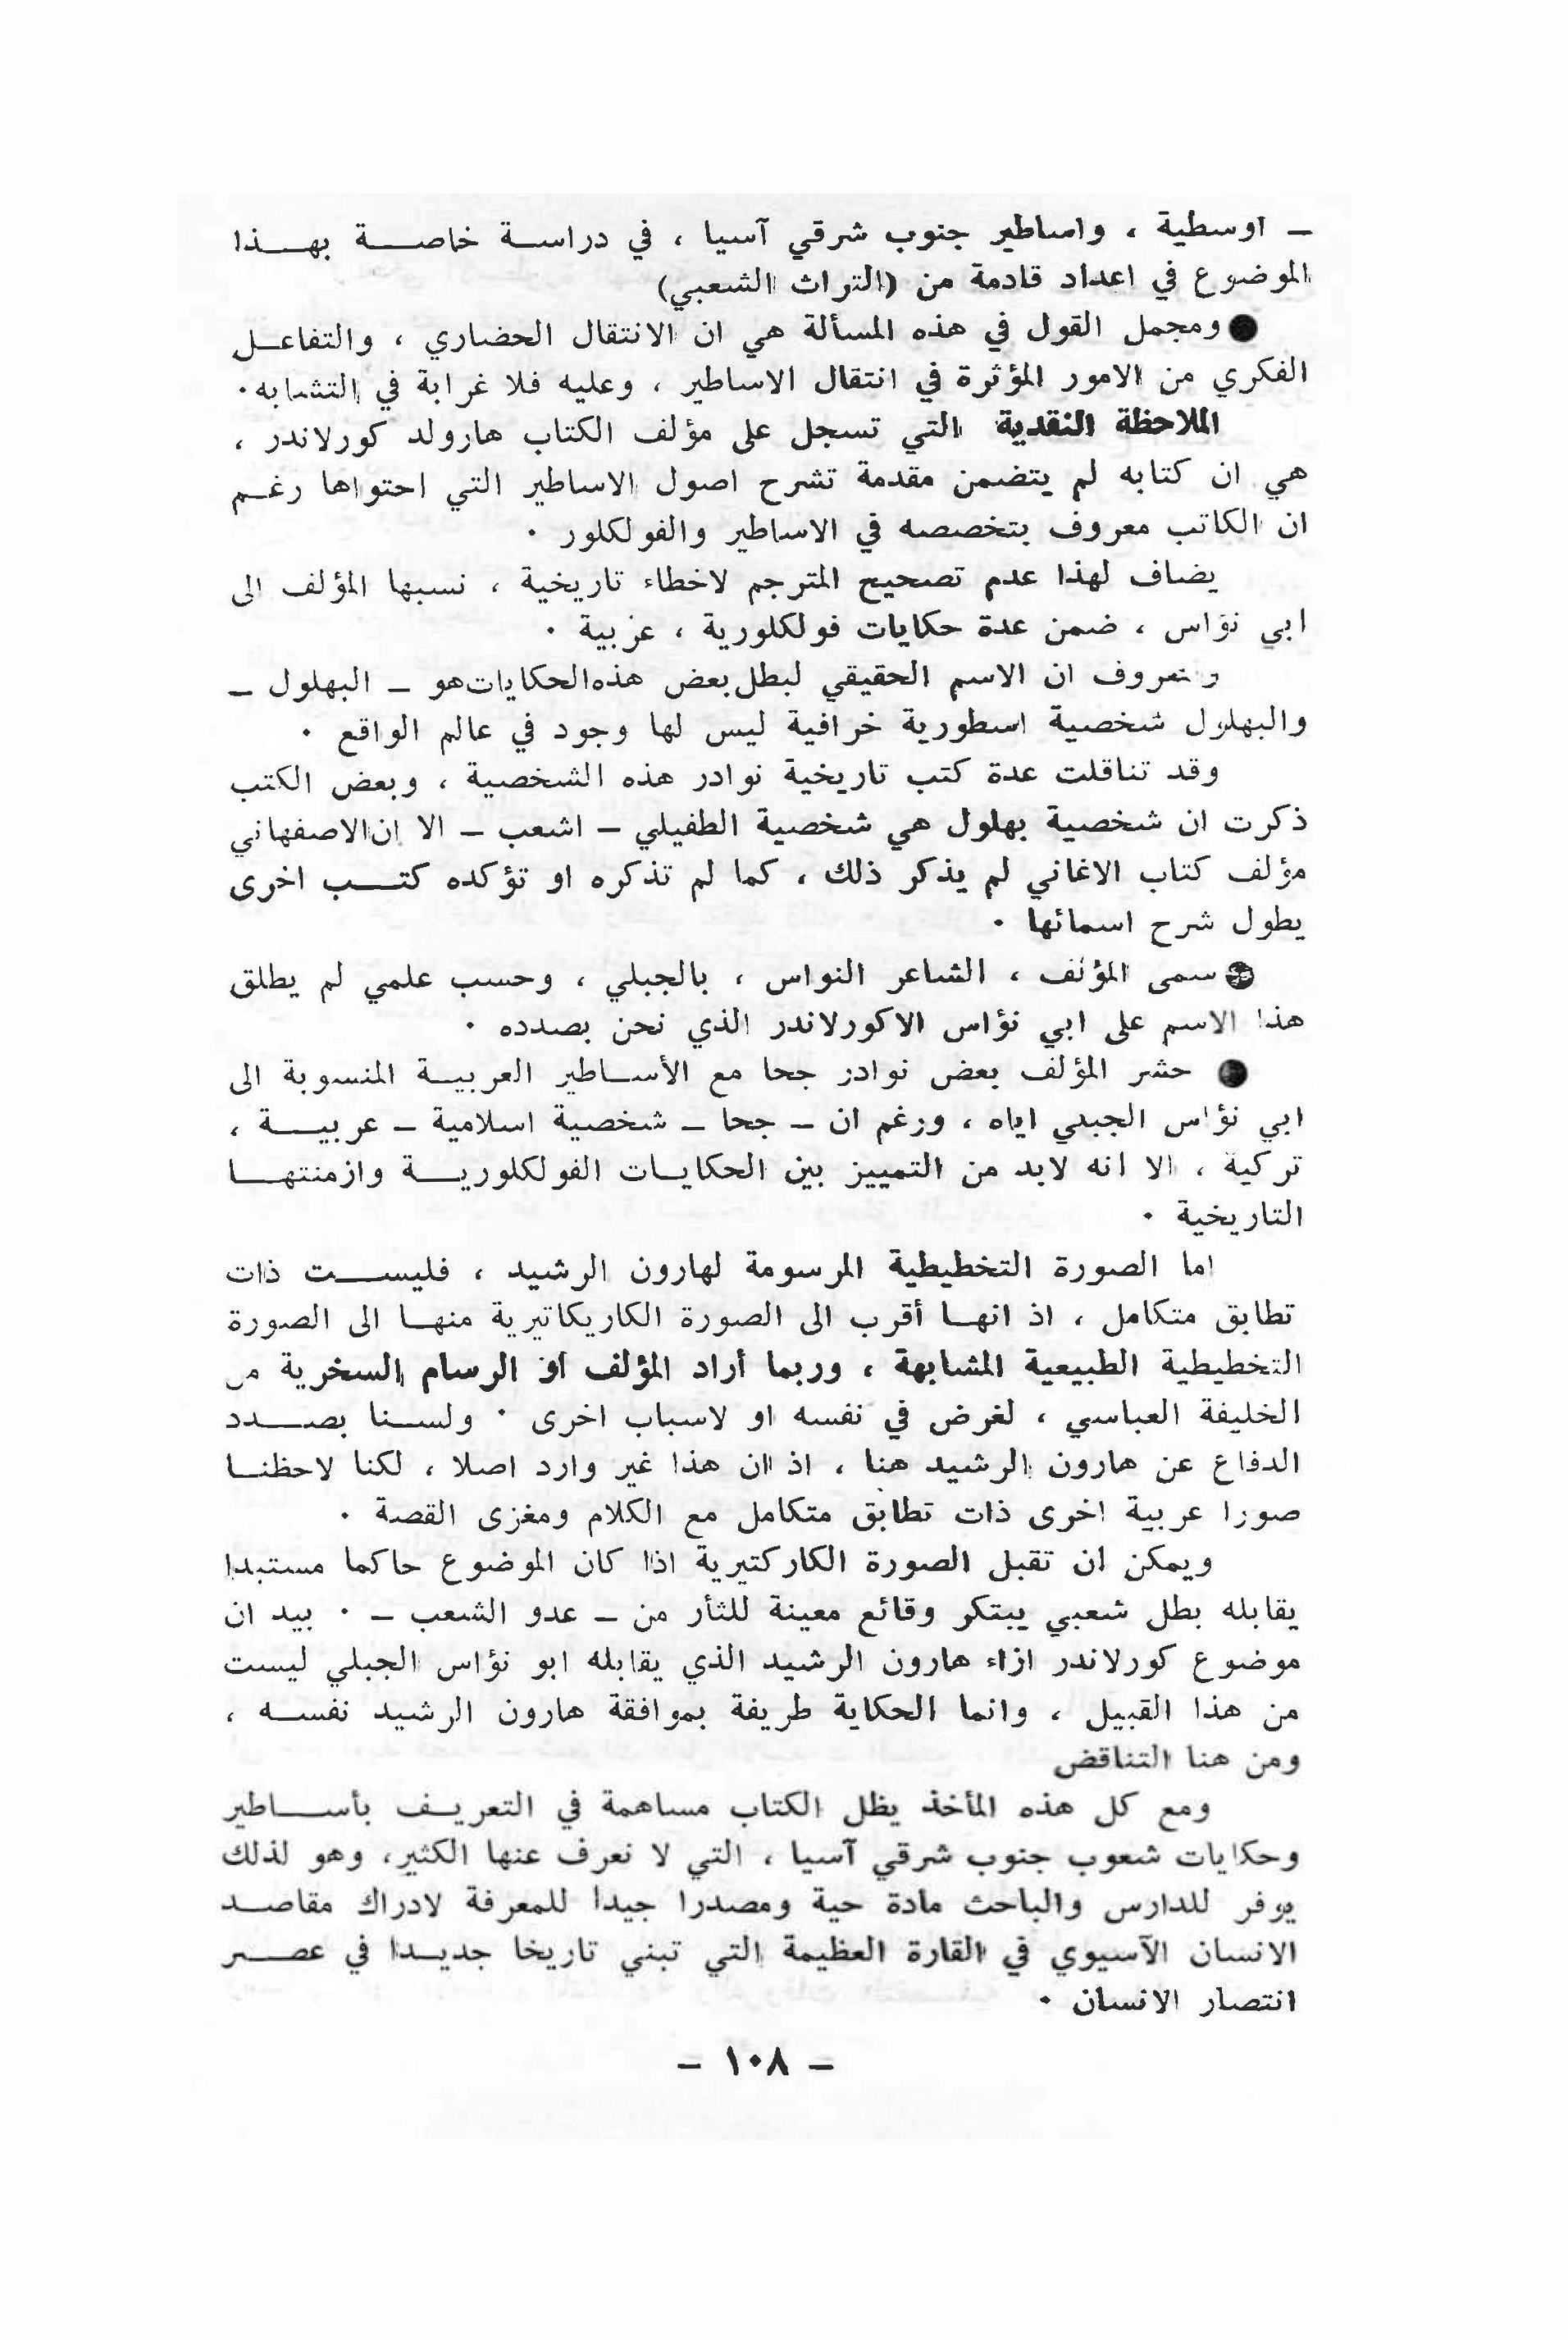 ـ اوسطية ، واساطير جنوب شرقي آسيا ، في دراسة خاصة بهذا
الموضوع في اعداد قادمة من (التراث الشعبي)
● ومجمل القول في هذه المسألة هي ان الانتقال الحضاري ، والتفاعل
الفكري من الامور المؤثرة في انتقال الاساطير ، وعليه فلا غرابة في التشابه ٠
الملاحظة النقدية التي تسجل على مؤلف الكتاب هارولد كورلاندر ،
هي ان كتابه لم يتضمن مقدمة تشرح اصول الاساطير التي احتواها رغم
ان الكاتب معروف بتخصصه في الاساطير والفولكلور ٠
يضاف لهذا عدم تصحيح المترجم لاخطاء تاريخية ، نسبها المؤلف الى
ابي نؤاس ، ضمن عدة حكايات فولكلورية ، عربية ٠
ومعروف ان الاسم الحقيقي لبطل بعض هذه الحكايات هو ـ البهلول ـ
والبهلول شخصية اسطورية خرافية ليس لها وجود في عالم الواقع ٠
وقد تناقلت عدة كتب تاريخية نوادر هذه الشخصية ، وبعض الكتب
ذكرت ان شخصية بهلول هي شخصية الطفيلي ـ اشعب ـ الا ان الاصفهاني
مؤلف كتاب الاغاني لم يذكر ذلك ، كما لم تذكره او تؤكده كتب اخرى
يطول شرح اسمائها ٠
● سمى المؤلف ، الشاعر النواس ، بالجبلي ، وحسب علمي لم يطلق
هذا الاسم على ابي نؤاس الاكورلاندر الذي نحن بصدده ٠
● حشر المؤلف بعض نوادر جحا مع الأساطير العربية المنسوبة الى
ابي نؤاس الجبلي اياه ، ورغم ان ـ جحا ـ شخصية اسلامية ـ عربية ،
تركية ، الا انه لابد من التمييز بين الحكايات الفولكلورية وازمنتها
التاريخية ٠
اما الصورة التخطيطية المرسومة لهارون الرشيد ، فليست ذات
تطابق متكامل ، اذ انها أقرب الى الصورة الكاريكاتيرية منها الى الصورة
التخطيطية الطبيعية المشابهة ، وربما أراد المؤلف او الرسام السخرية من
الخليفة العباسي ، لغرض في نفسه او لاسباب اخرى ٠ ولسنا بصدد
الدفاع عن هارون الرشيد هنا ، اذ ان هذا غير وارد اصلا ، لكنا لاحظنا
صورا عربية اخرى ذات تطابق متكامل مع الكلام ومغزى القصة ٠
ويمكن ان تقبل الصورة الكاركتيرية اذا كان الموضوع حاكما مستبدا
يقابله بطل شعبي يبتكر وقائع معينة للثأر من ـ عدو الشعب ـ ٠ بيد ان
موضوع كورلاندر ازاء هارون الرشيد الذي يقابله ابو نؤاس الجبلي ليست
من هذا القبيل ، وانما الحكاية طريفة بموافقة هارون الرشيد نفسه ،
ومن هنا التناقض
ومع كل هذه المأخذ يظل الكتاب مساهمة في التعريف بأساطير
وحكايات شعوب جنوب شرقي آسيا ، التي لا نعرف عنها الكثير، وهو لذلك
يوفر للدارس والباحث مادة حية ومصدرا جيدا للمعرفة لادراك مقاصد
الانسان الآسيوي في القارة العظيمة التي تبني تاريخا جديدا في عصر
انتصار الانسان ٠
ـ ١٠٨ ـ